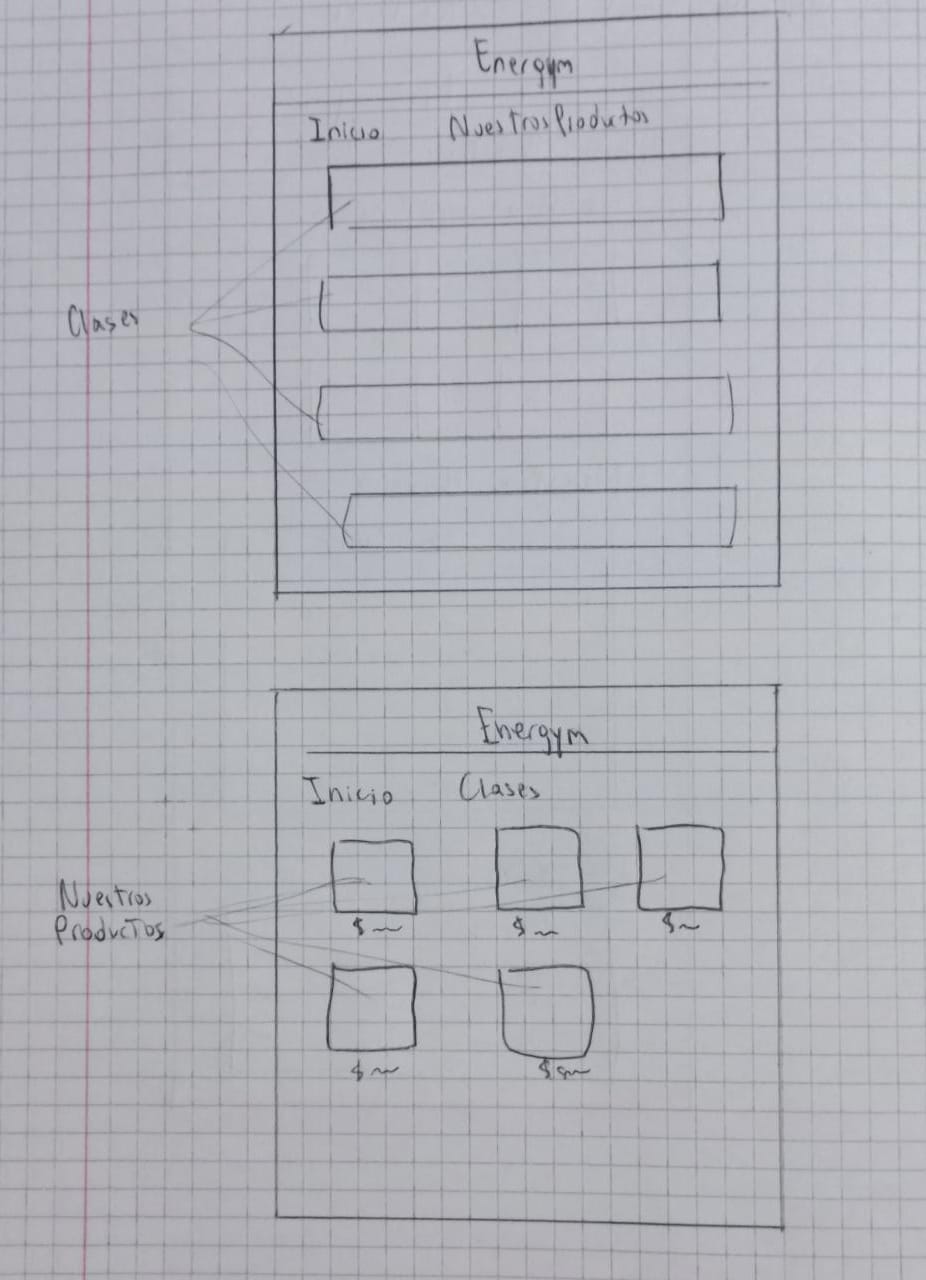 Energym
Inicio Nuestros Productos
Clases
Energym
Inicio Clases
$ $ $
Nuestros
Productos
$ $